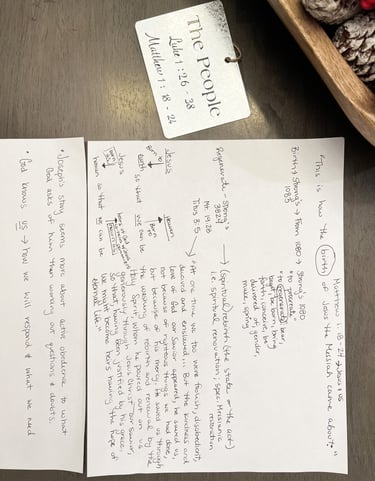 The People
Luke 1:26-38
Matthew 1:18-24
Matthew 1:18-24
"This is how the birth of Jesus the Messiah came about:"
Birth → Strong's → From 1080 → Strong's 1080
1083
• to procreate
bear,
beget, be born, bring
forth, conceive, be
delivered of, gender,
make, spring
Regenerate → Strong's
3824
Mt. 19:28
Titus 3:5
→ (spiritual) rebirth (the state or the act)
i.e. spiritual renovation; spec. Messianic
restoration
"At one time we too were foolish, disobedient,
deceived and enslaved... But the kindness and
love of God our Savior appeared, he saved us,
not because of righteous things we had done,
but because of his mercy. He saved us through
the washing of rebirth and renewal by the
Holy Spirit, whom he poured out on us
generously through Jesus Christ our Savior,
so that, having been justified by his grace,
we might become heirs having the hope of
eternal life."
Jesus
earth so that we can be
heaven
born
Jesus
heaven so that we can be
• Joseph's story seems more about active obedience to what
God asks of him than working our questions & doubts.
• God knows us → how we will respond & what we need